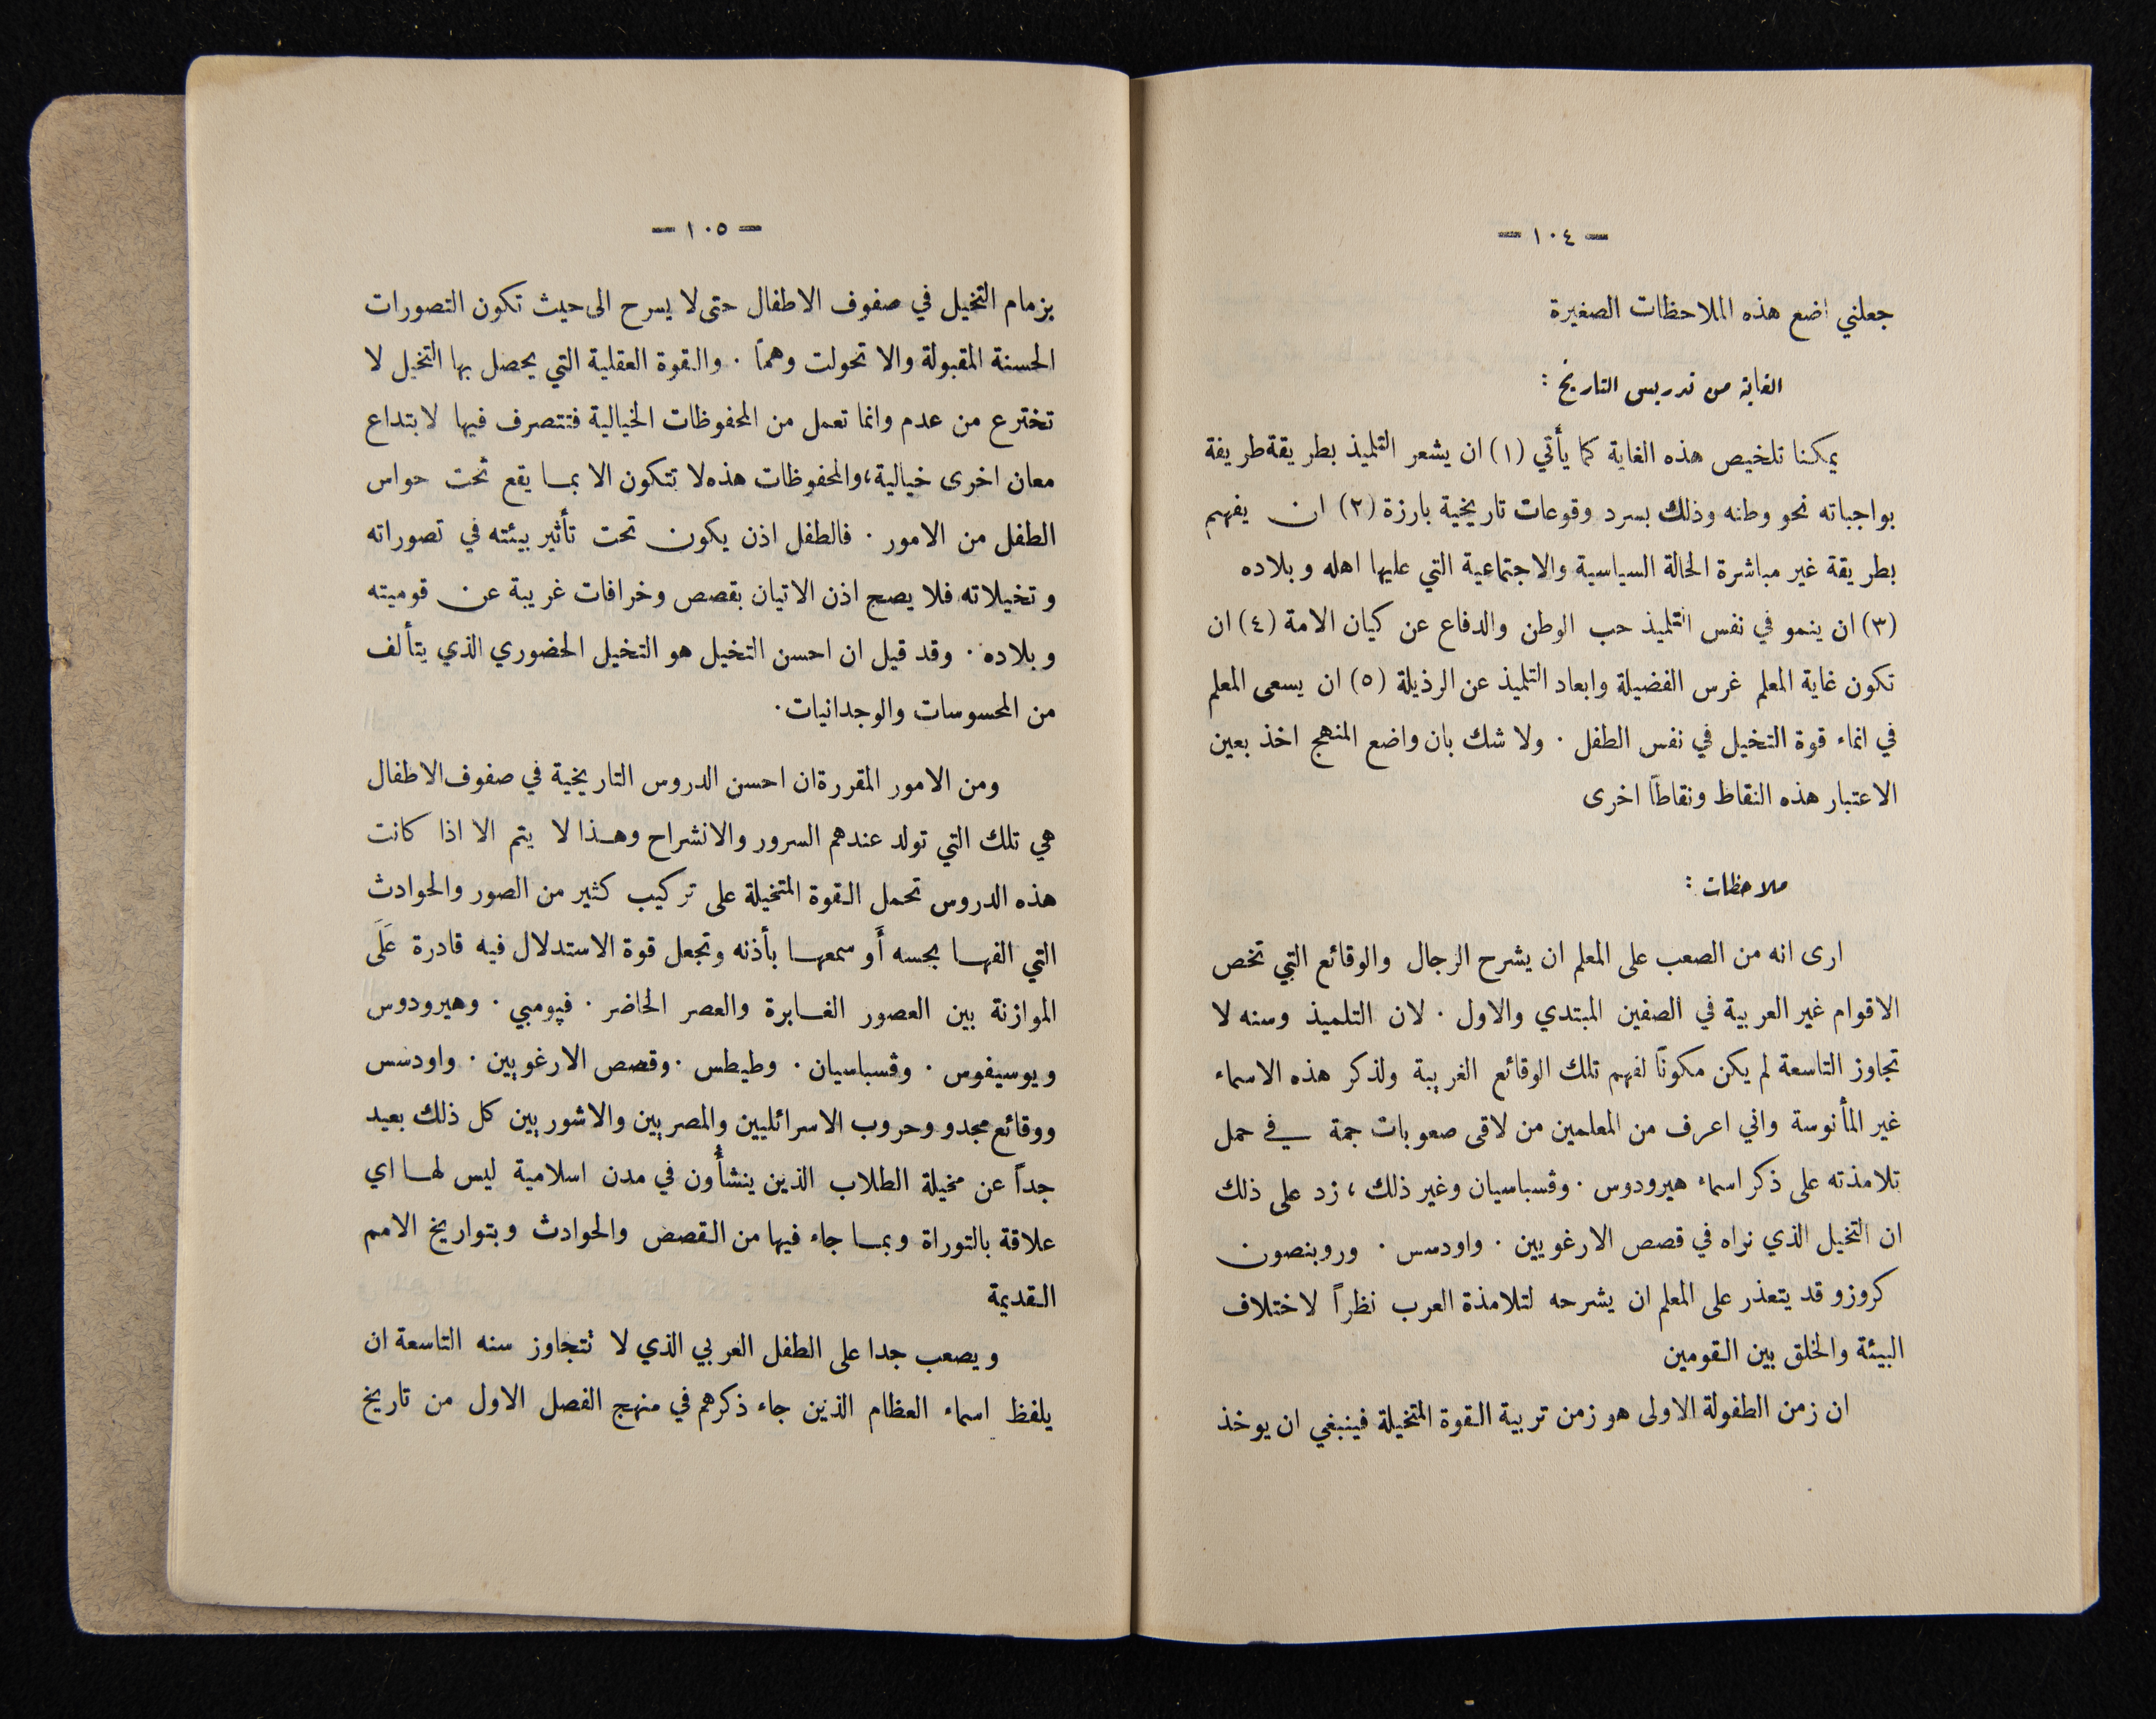 — ١٠٤ —
جعلني اضع هذه الملاحظات الصغيرة
الغاية من تدريس التاريخ :
يمكننا تلخيص هذه الغاية كما يأتي (١) ان يشعر التلميذ بطريقة طريفة
بواجباته نحو وطنه وذلك بسرد وقوعات تاريخية بارزة (٢) ان يفهم
بطريقة غير مباشرة الحالة السياسية والاجتماعية التي عليها اهله وبلاده
(٣) ان ينمو في نفس التلميذ حب الوطن والدفاع عن كيان الامة (٤) ان
تكون غاية المعلم غرس الفضيلة وابعاد التلميذ عن الرذيلة (٥) ان يسعى المعلم
في انماء قوة التخيل في نفس الطفل . ولا شك بان واضع المنهج اخذ بعين
الاعتبار هذه النقاط ونقاطاً اخرى
ملاحظات :
ارى انه من الصعب على المعلم ان يشرح الرجال والوقائع التي تخص
الاقوام غير العربية في الصفين المبتدي والاول . لان التلميذ وسنه لا
تجاوز التاسعة لم يكن مكوناً لفهم تلك الوقائع الغريبة ولذكر هذه الاسماء
غير المأنوسة واني اعرف من المعلمين من لاقى صعوبات جمة في حمل
تلامذته على ذكر اسماء هيرودوس . وڤسباسيان وغير ذلك ، زد على ذلك
ان التخيل الذي نراه في قصص الارغويين . واودسس . وروبنصون
كروزو قد يتعذر على المعلم ان يشرحه لتلامذة العرب نظراً لاختلاف
البيئة والخلق بين القومين
ان زمن الطفولة الاولى هو زمن تربية القوة المتخيلة فينبغي ان يوخذ
— ١٠٥ —
بزمام التخيل في صفوف الاطفال حتى لا يسرح الى حيث تكون التصورات
الحسنة المقبولة والا تحولت وهماً . والقوة العقلية التي يحصل بها التخيل لا
تخترع من عدم وانما تعمل من المحفوظات الخيالية فتتصرف فيها لابتداع
معان اخرى خيالية، والمحفوظات هذه لا تتكون الا بما يقع تحت حواس
الطفل من الامور . فالطفل اذن يكون تحت تأثير بيئته في تصوراته
وتخيلاته فلا يصح اذن الاتيان بقصص وخرافات غريبة عن قوميته
وبلاده . وقد قيل ان احسن التخيل هو التخيل الحضوري الذي يتألف
من المحسوسات والوجدانيات .
ومن الامور المقررة ان احسن الدروس التاريخية في صفوف الاطفال
هي تلك التي تولد عندهم السرور والانشراح وهذا لا يتم الا اذا كانت
هذه الدروس تحمل القوة المتخيلة على تركيب كثير من الصور والحوادث
التي الفها بحسه أَو سمعها بأذنه وتجعل قوة الاستدلال فيه قادرة عَلَى
الموازنة بين العصور الغابرة والعصر الحاضر . فپومبي . وهيرودوس
ويوسيفوس . وڤسباسيان . وطيطس . وقصص الارغويين . واودسس
ووقائع مجدو وحروب الاسرائليين والمصريين والاشوريين كل ذلك بعيد
جداً عن مخيلة الطلاب الذين ينشأون في مدن اسلامية ليس لها اي
علاقة بالتوراة وبما جاء فيها من القصص والحوادث وبتواريخ الامم
القديمة
ويصعب جدا على الطفل العربي الذي لا تتجاوز سنه التاسعة ان
يلفظ اسماء العظام الذين جاء ذكرهم في منهج الفصل الاول من تاريخ